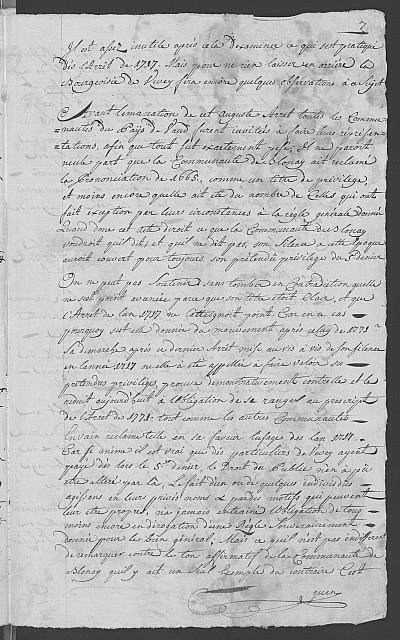 7
Il est assez inutile après cela d'examiner ce qui s'est pratiqué
dès l'Arrêt de 1717. Mais pour ne rien laisser en arrière la
Bourgeoisie de Vevey fera encore quelques observations à ce Sujet
Avant l'emanation de cet auguste Arret toutes les Commu-
nautés du Païs de Vaud furent invitées à faire leurs représen-
tations, afin que tout fut exactement pesé; Il ne paroit
nulle part que la Communauté de Blonay ait reclamé
la Prononciation de 1665, comme un titre de privilege,
et moins encore quelle ait été du nombre de Celles qui ont
fait exception par leurs circonstances à la règle generale donnée
Quand donc cet été droit ce que la Communauté de Blonay
voudroit qu'il dit, et qu'il ne dit pas, son Silence à cette époque
auroit couvert pour toujours son prétendu privilege du 5e denier
On ne peut pas Soutenir sans tomber en Contradiction quelle
ne s'est point avancée parce que son titre étoit Clair, et que
l'Arret de l'an 1717 ne l'atteignoit point. Car en ce cas
pourquoy s'est elle donnée du mouvement après celuy de 1771?
Sa demarche après ce dernier Arret mise au vis à vis de son silence
en l'année 1717 ou elle a été appellée à faire valoir ses
pretendus privileges, prouve demonstrativement contre elle et la
réduit aujourd'huit à l'obligation de se ranger au prescript
de l'Arret de 1771 tout comme les autres Communautés
Envain reclame t'elle en sa faveur l'usage dès l'an 1717.
Car si même il est vrai que des particuliers de Vevey ayent
payé dès lors le 5e denier, le Droit du Public n'en à pû
être altéré par là. Le fait d'un ou de quelques individus
agissans en leurs privés noms & par des motifs qui peuvent
leur être propres, n'a jamais entrainé l'obligation de tous
moins encore en dérogation d'une Règle Souverainement
donnée pour le bien général. Mais ce qu'il n'est pas indifferent
de remarquer contre le ton affirmatif de la Communauté de
Blonay qu'il y ait un Seul Exemple du contraire C'est
quen